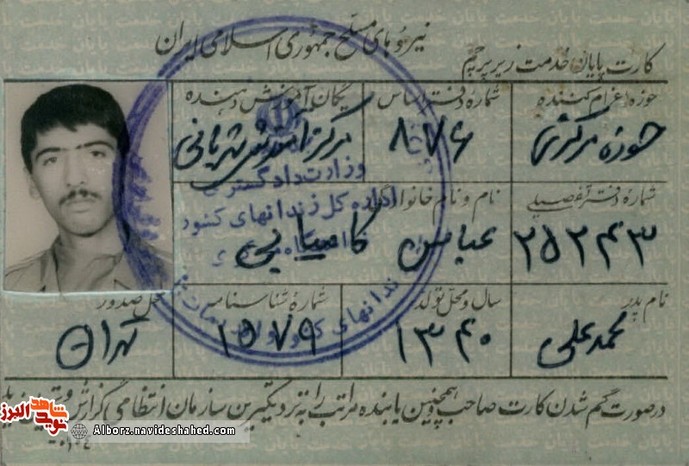 نیروهای مسلح جمهوری اسلامی ایران
کارت پایان خدمت زیر پرچم
حوزه اعزام کننده
شماره دفتر اساس
یگان آموزش دهنده
حوزه مرکزی
۸۷۶
مرکز آموزش شهربانی
وزارت دادگستری
اداره کل زندانهای کشور
شماره دفتر تفصیلی
نام و نام خانوادگی
۲۵۲۴۳
عباس کامیابی
نام پدر
سال و محل تولد
شماره شناسنامه
محل صدور
محمدعلی
۱۳۴۰
۱۵۷۹
تهران
در صورت گم شدن کارت صاحب و همچنین یابنده مراتب را به نزدیکترین سازمان انتظامی گزارش
شاهد
نوید
البرز
Alborz.navideshahed.com